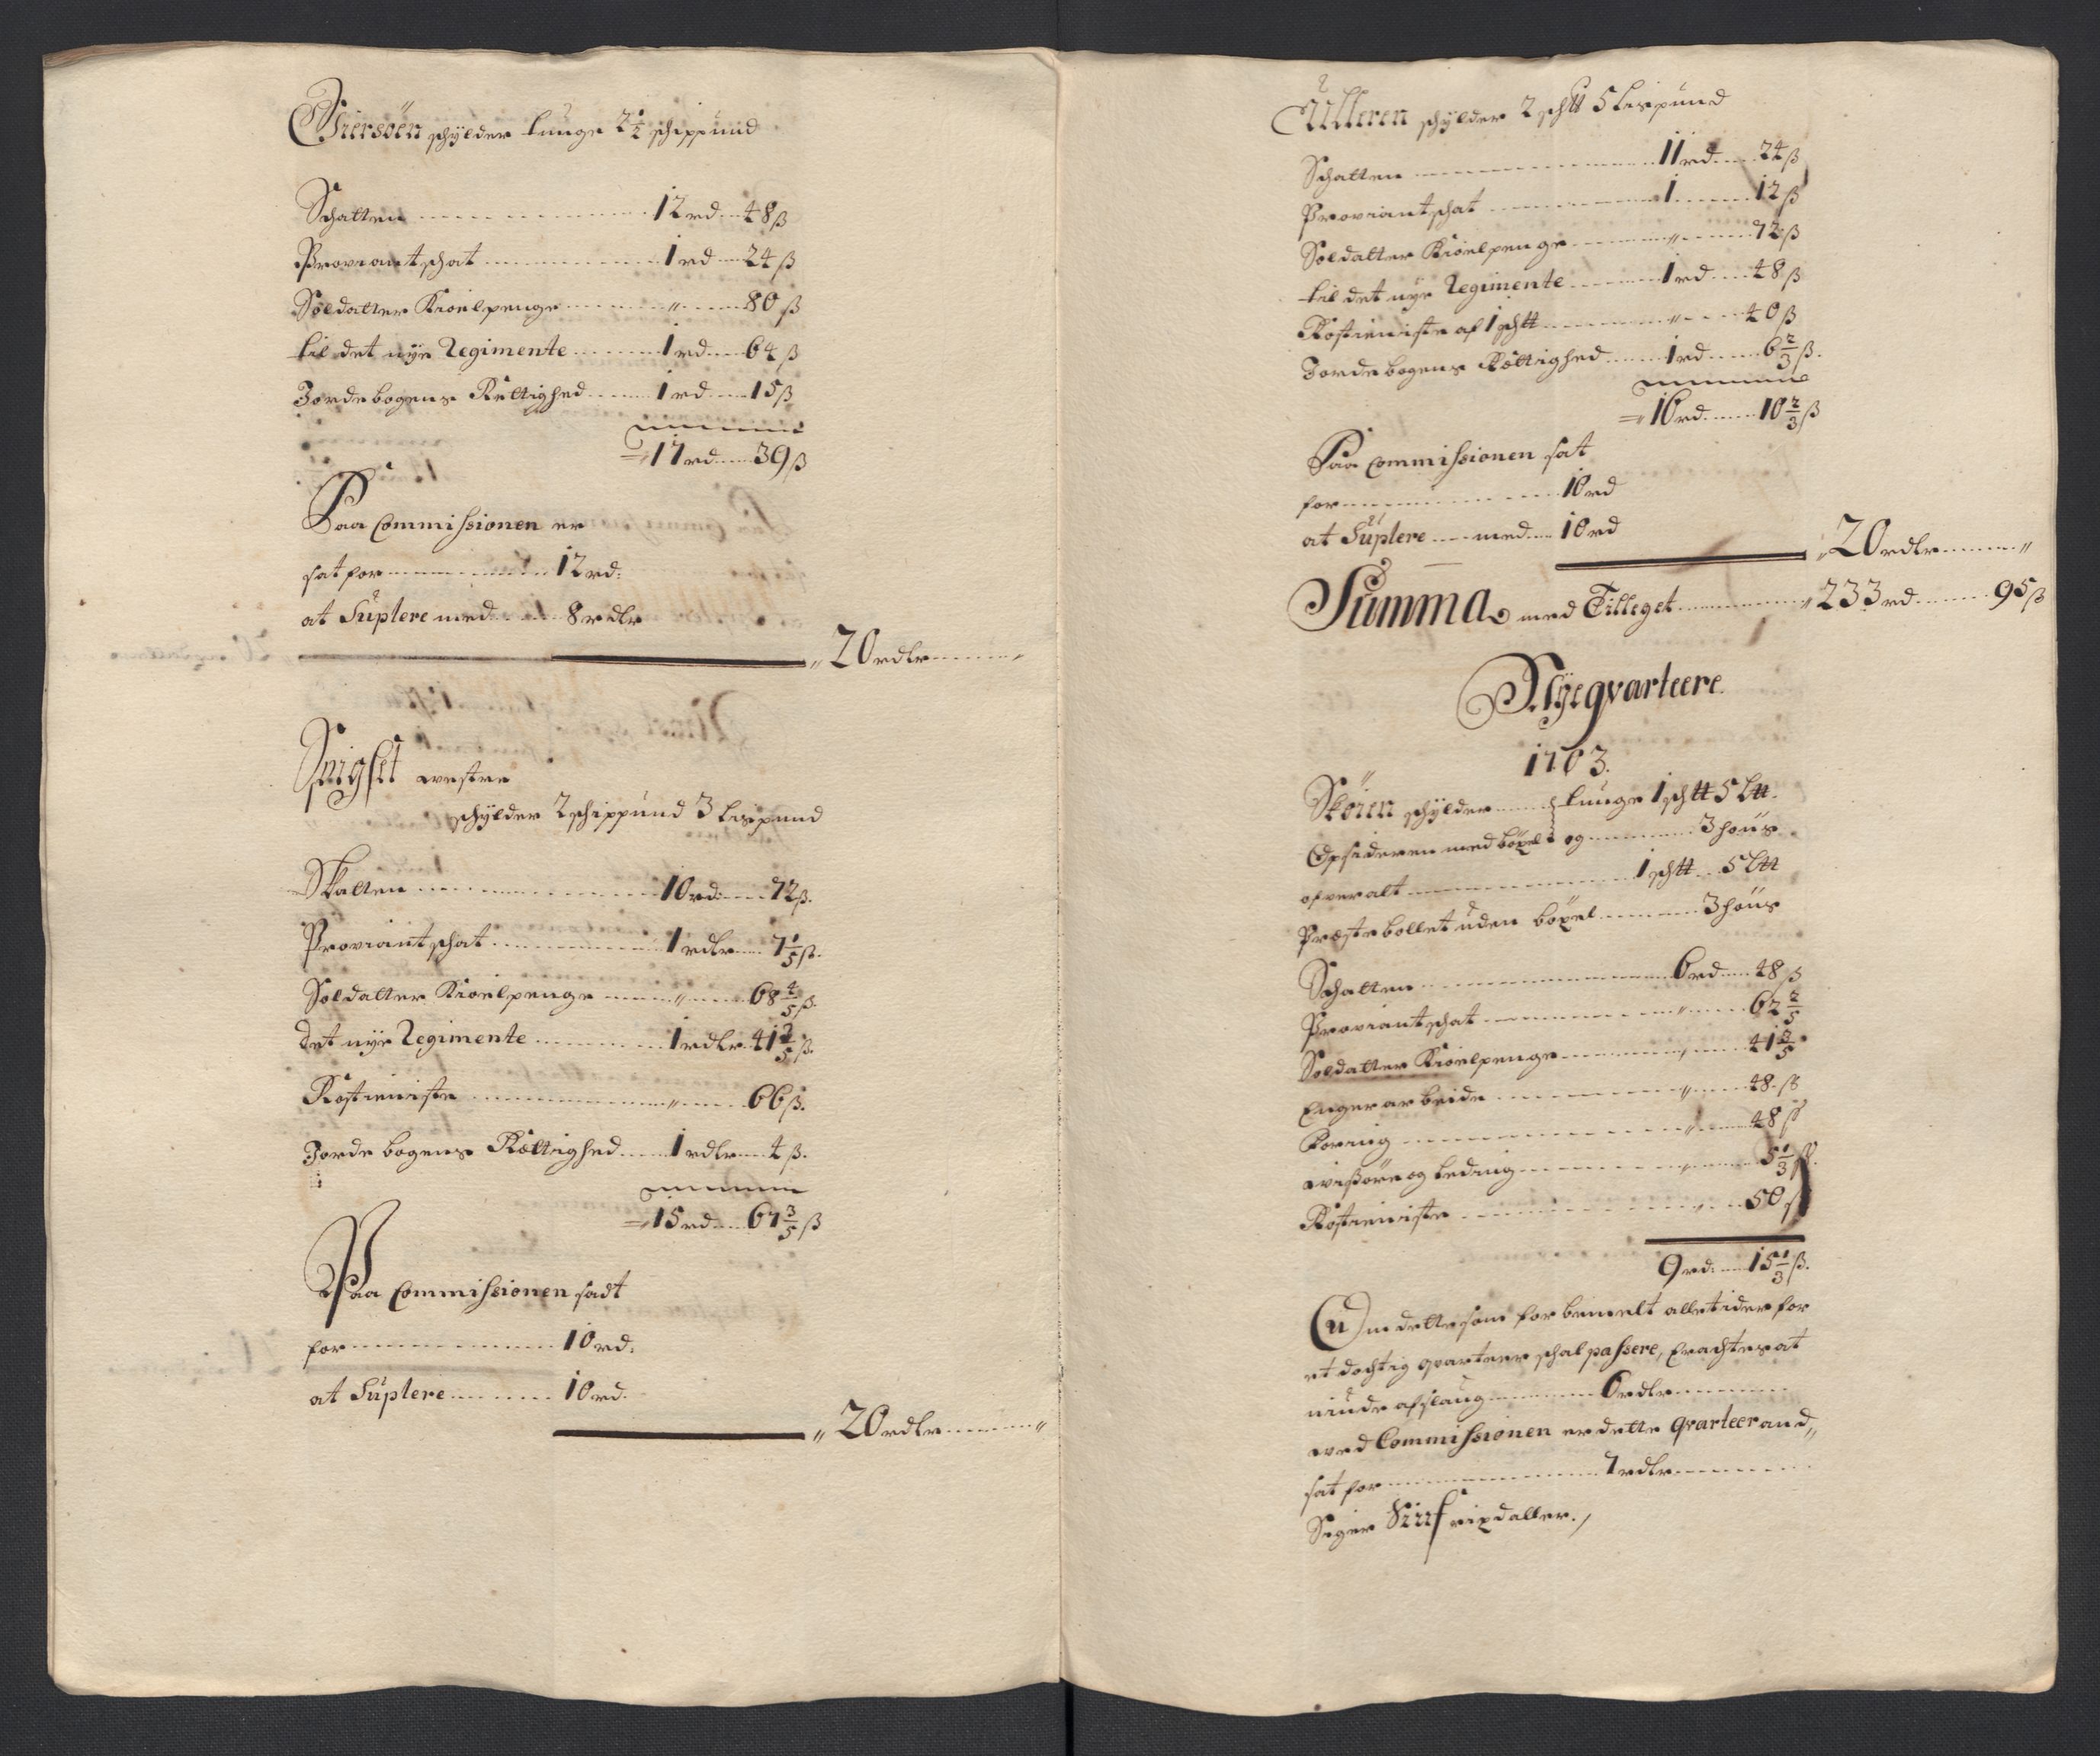 schylder tunge 2½ schippund
Schatten 12 rd 48 ß
Proviantschat 1 rd 24 ß
Soldatter Kioelpenge " 80 ß
til det nye Regimente 1 rd 64 ß
Jordebogens Rettighed 1 rd 15 ß
17 rd 39 ß
Paa Commissionen er
sat for 12 rd:
at Suplere med 8 rdlr
" 20 rdlr "
westre
schylder 2 schippund 3 Lispund
Skatten 10 rd 72 ß.
Proviantschat 1 rdlr 7 1/5 ß.
Soldatter Kioelpenge " 68 4/5 ß.
det nye Regimente 1 rdlr 41 ß.
Rostieniste " 66 ß.
Jordebogens Rettighed 1 rdlr 4 ß.
15 rd 67 3/5 ß
Paa Commissionen sadt
for 10 rd.
at Suplere 10 rd.
" 20 rdlr "
Ulleren schylder 2 sch℔ 5 Lispund
Schatten 11 rd 24 ß
Proviantschat 1 12 ß
Soldatter Kioelpenge " 72 ß
til det nye Regimente 1 rd 48 ß
Rostieniste af 1 sch℔ " 40 ß
Jordebogens Rettighed 1 rd 6 2/3 ß.
16 rd 10 2/3 ß
Paa Commissionen sat
for 10 rd
at Suplere med 10 rd
" 20 rdlr "
Summa med Tilleget " 233 rd 95 ß
Nyeqvarteere.
1703.
Skøien schylder tunge 1 sch℔ 5 L℔.
Opsideren med böxel og 3 høns
ofveralt 1 sch℔ 5 L℔
Præstebollet uden böxel 3 høns
Schatten 6 rd 48 ß
Proviantschat " 62 2/5
Soldatter Kioelpenge " 41 3/5
Engerarbeide " 48 ß
Foring " 48 ß
wisøre og leding " 5 1/3 ß.
Rostieniste " 50 ß
9 rd 15 1/3 ß.
Um dette som forbemelt alletider for
et dochtig qvarteer schal passere, Erachtes at
niude afslaug 6 rdlr
wed Commissionen er dette qvarteer and,,
sat for 7 rdlr
Siger rixdaller.,